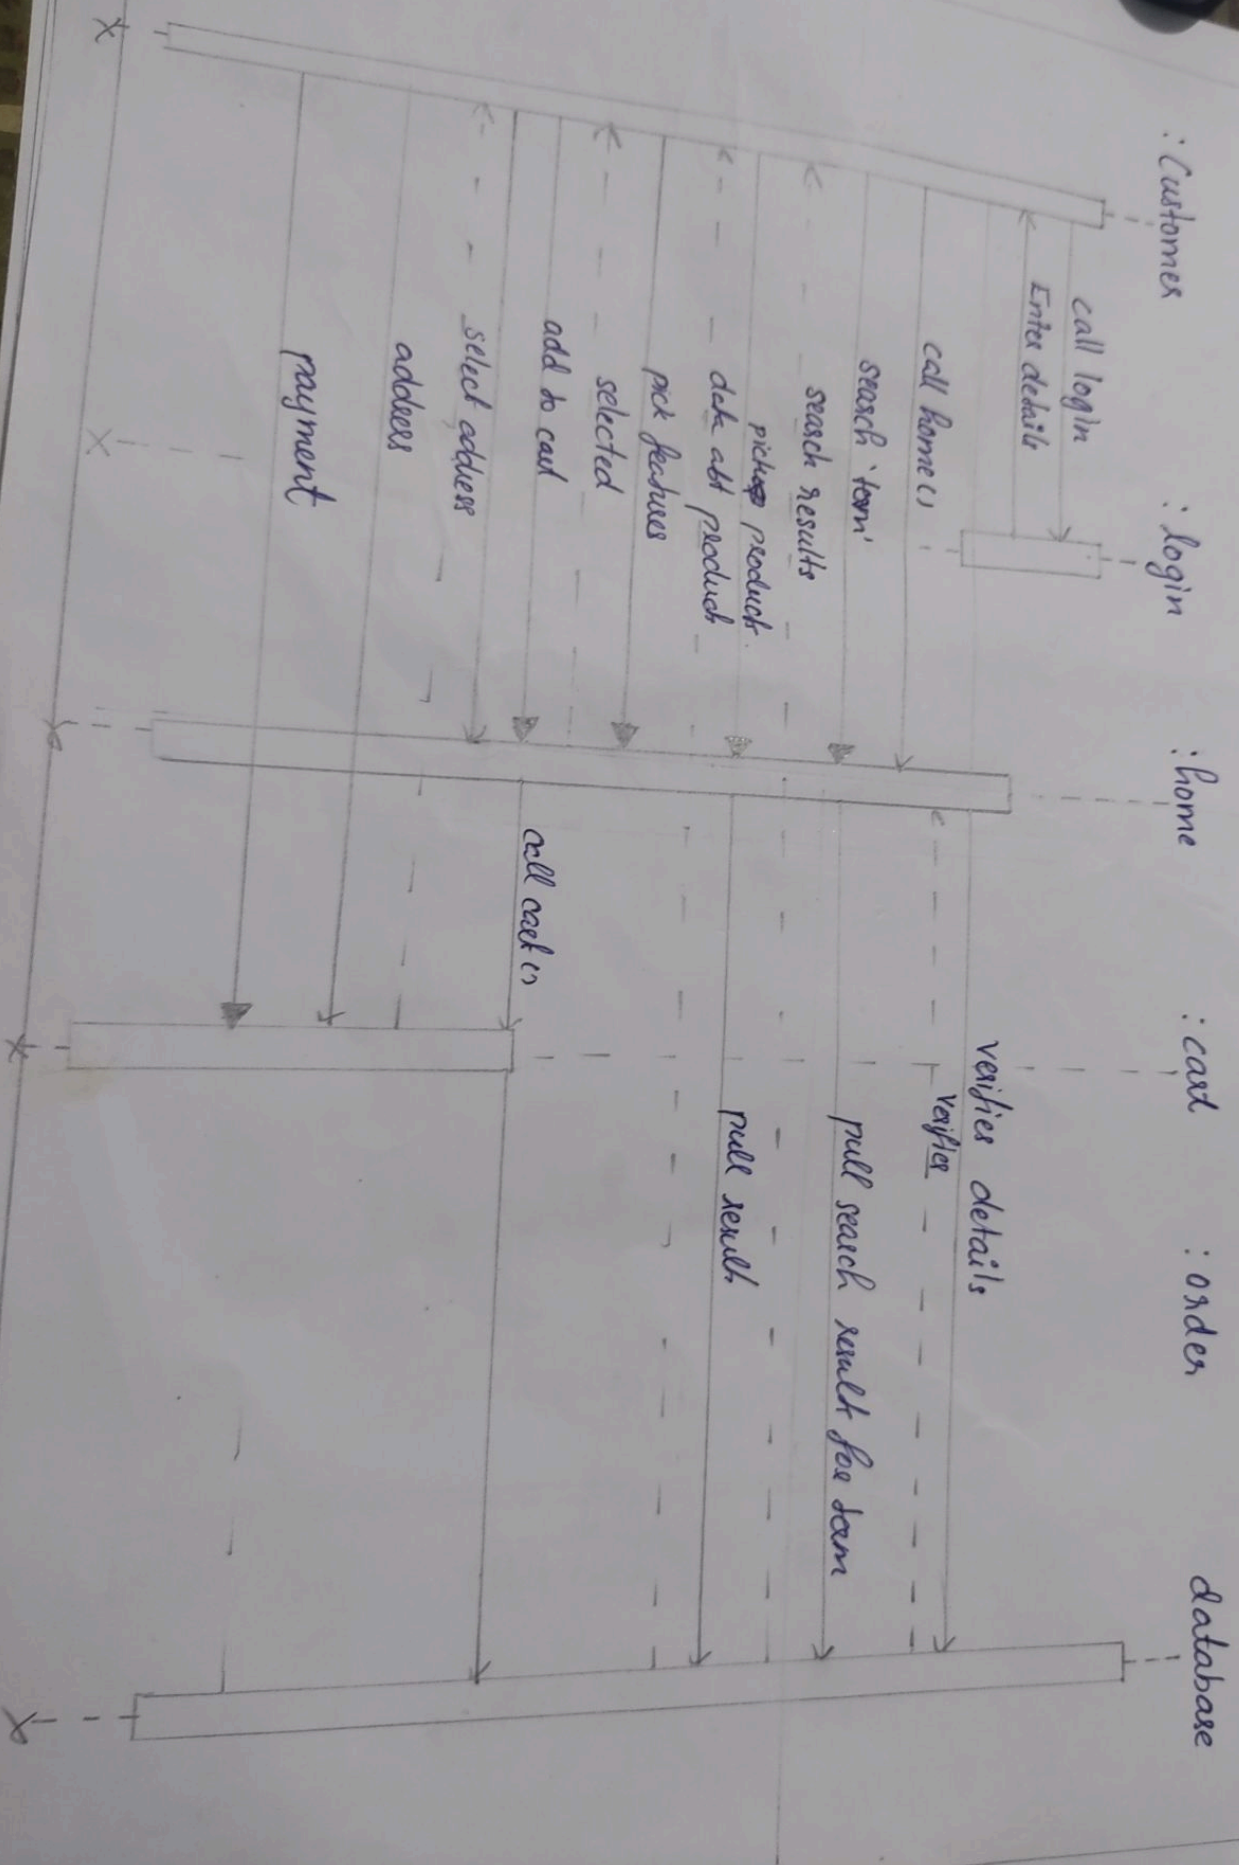 : Customer
: login
: home
: cart
: order
database
call login
Enter details
verifies details
verifies
call home ()
search 'term'
pull search result for term
search results
pick product
pull result
data abt product
pick features
selected
add to cart
call cart ()
select address
address
payment